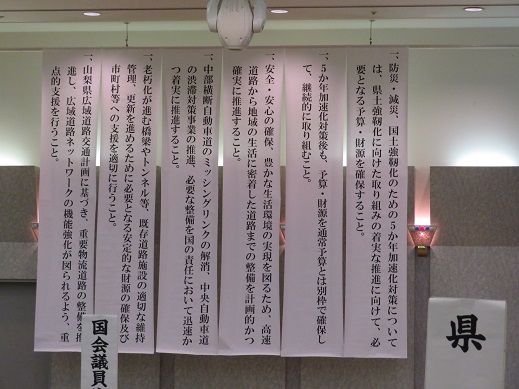 一、防災・減災、国土強靭化のための5か年加速化対策について
は、県土強靭化に向けた取り組みの着実な推進に向けて、必
要となる予算・財源を確保すること。
一、5か年加速化対策後も、予算・財源を通常予算とは別枠で確保し
て、継続的に取り組むこと。
一、安全・安心の確保、豊かな生活環境の実現を図るため、高速
道路から地域の生活に密着した道路までの整備を計画的かつ
確実に推進すること。
一、中部横断自動車道のミッシングリンクの解消、中央自動車道
の渋滞対策事業の推進、必要な整備を国の責任において迅速か
つ着実に推進すること。
一、老朽化が進む橋梁やトンネル等、既存道路施設の適切な維持
管理、更新を進めるために必要となる安定的な財源の確保及び
市町村等への支援を適切に行うこと。
一、山梨県広域道路交通計画に基づき、重要物流道路の整備を推
進し、広域道路ネットワークの機能強化が図られるよう、重
点的支援を行うこと。
県
国会議員